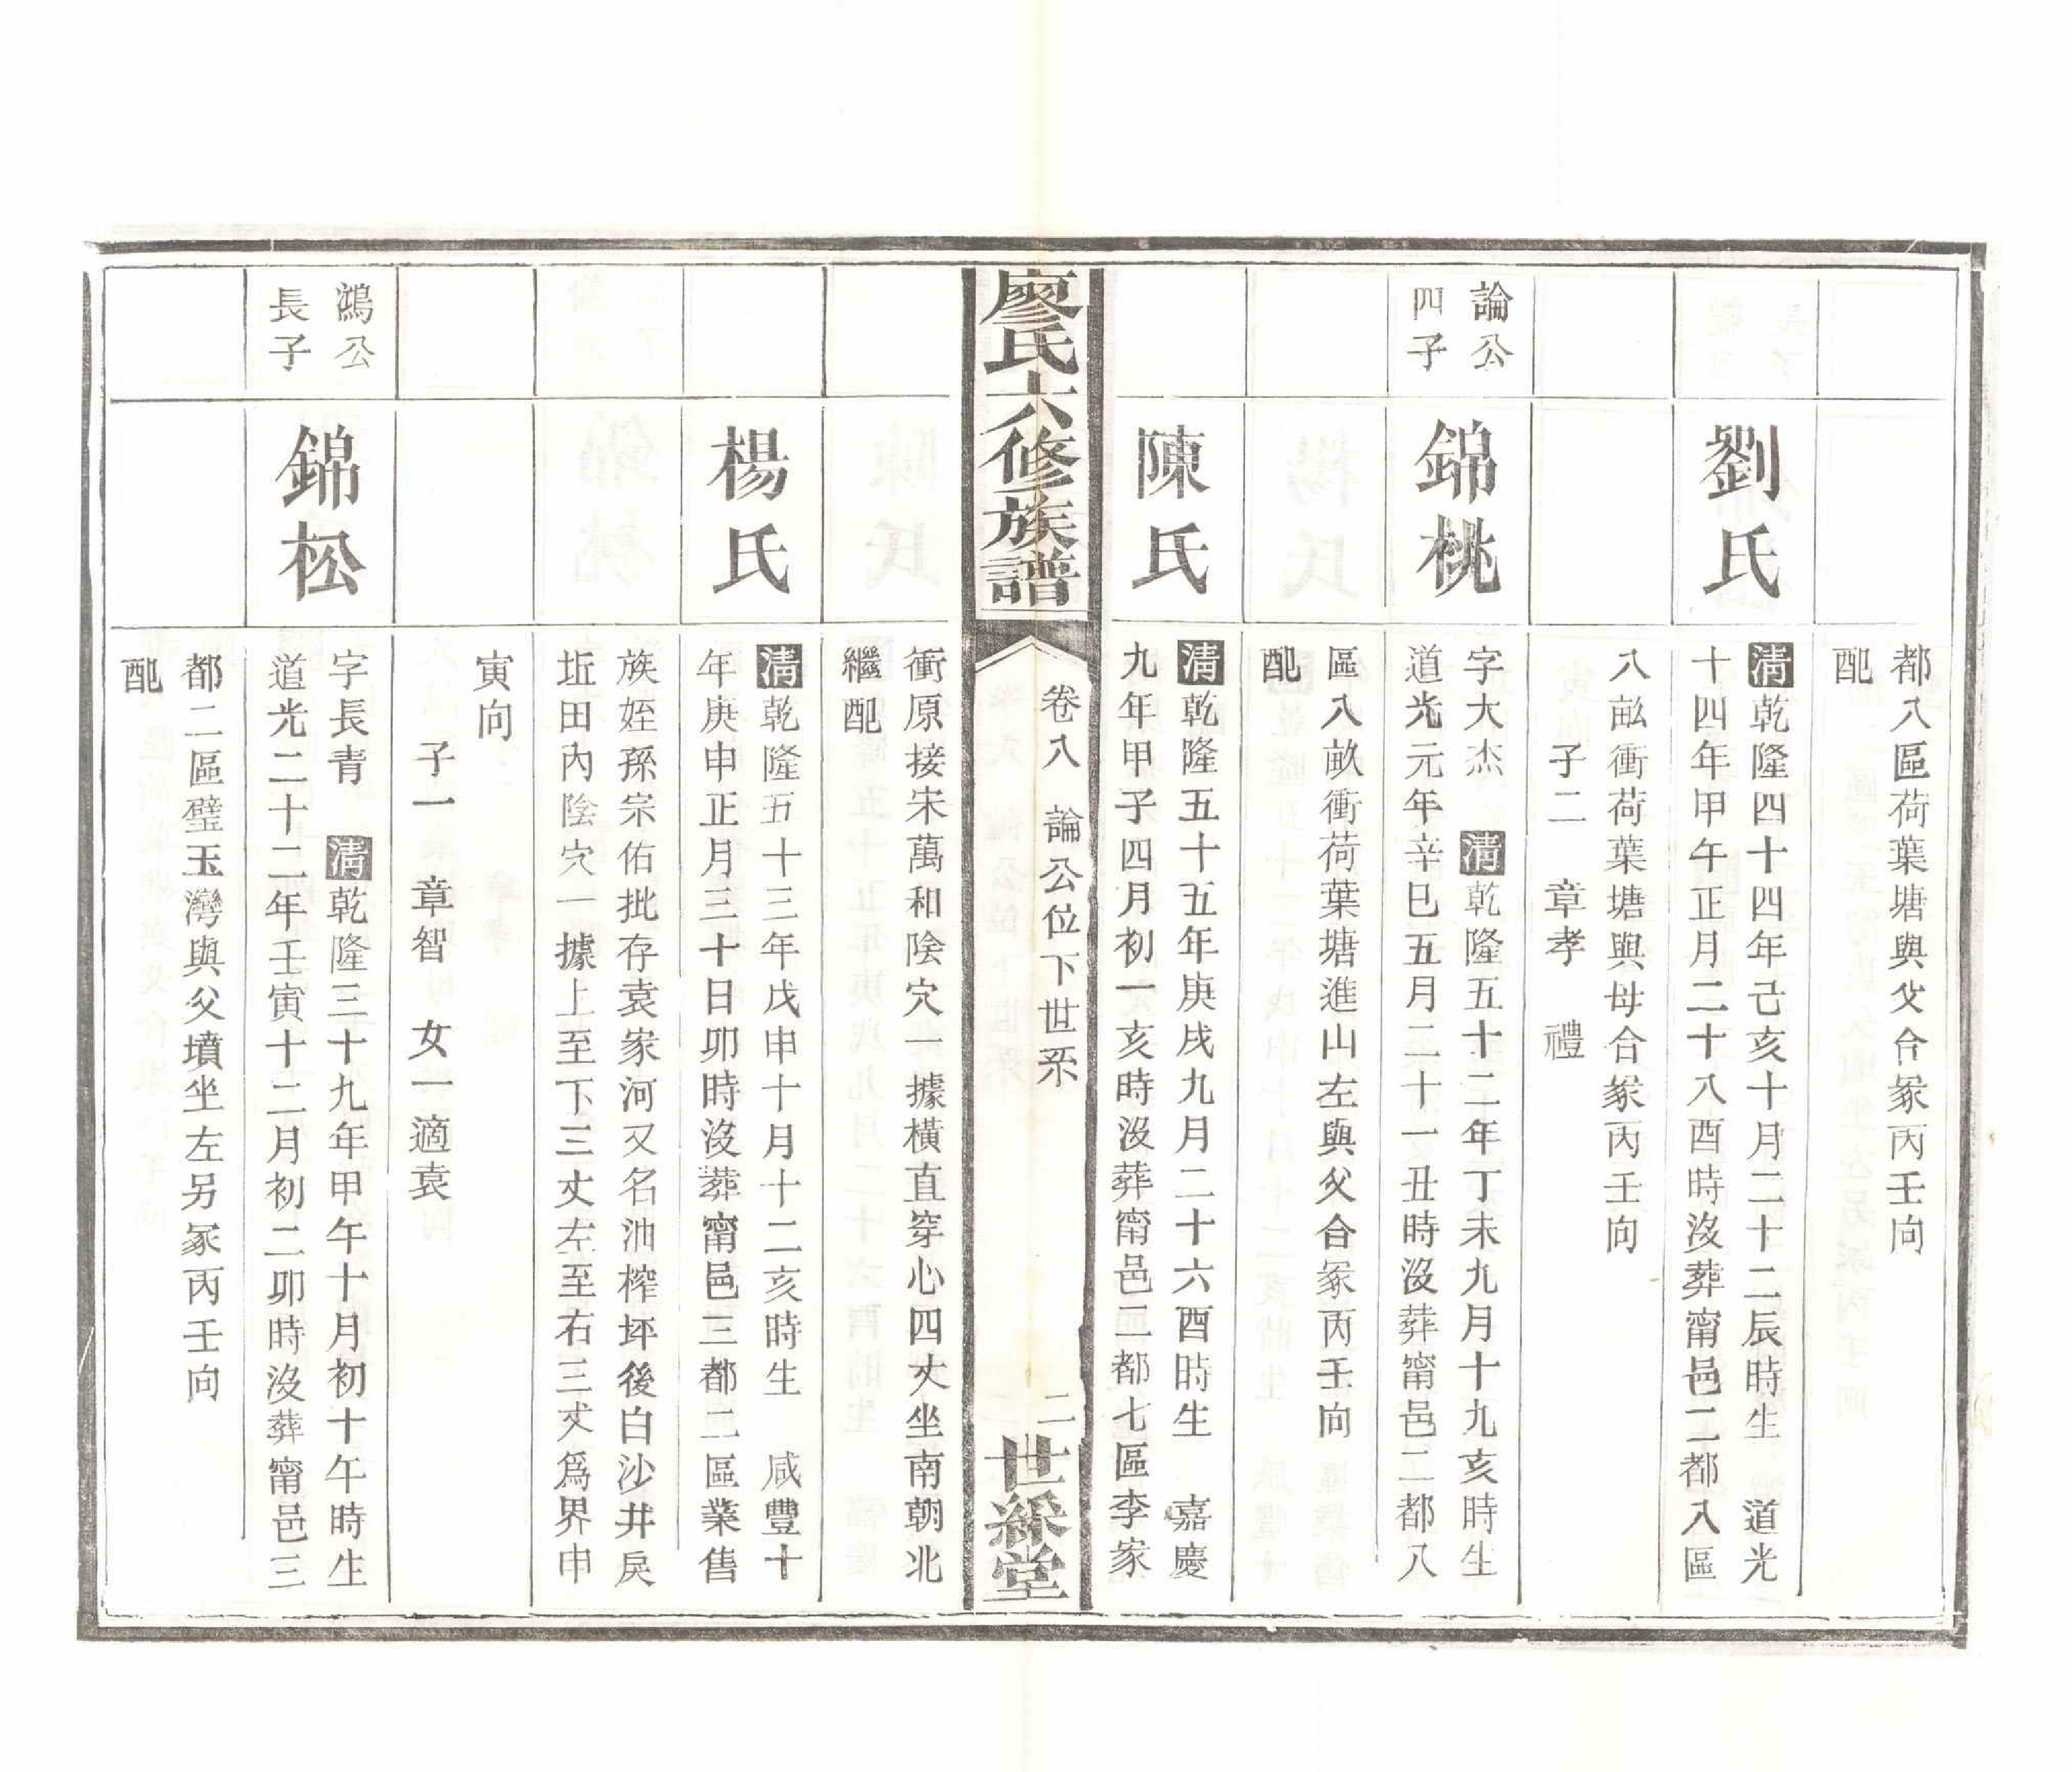 都八區荷葉塘與父合冢丙壬向
配
劉氏
清乾隆四十四年己亥十月二十二辰時生 道光
十四年甲午正月二十八酉時沒葬甯邑二都八區
八畝衝荷葉塘與母合冢丙壬向
子二 章孝 禮
論公
四子
錦桃
字大杰 清乾隆五十二年丁未九月十九亥時生
道光元年辛巳五月二十一丑時沒葬甯邑二都八
區八畝衝荷葉塘進山左與父合冢丙壬向
配
陳氏
清乾隆五十五年庚戌九月二十六酉時生 嘉慶
九年甲子四月初一亥時沒葬甯邑二都七區李家
廖氏六修族譜
卷八 論公位下世系
二
世綵堂
衝原接宋萬和陰穴一據橫直穿心四丈坐南朝北
繼配
楊氏
清乾隆五十三年戊申十月十二亥時生 咸豐十
年庚申正月三十日卯時沒葬甯邑三都二區業售
族姪孫宗佑批存袁家河又名油榨坪後白沙井戾
坵田內陰穴一據上至下三丈左至右三丈爲界申
寅向
子一 章智 女一適袁
鴻公
長子
錦松
字長青 清乾隆三十九年甲午十月初十午時生
道光二十二年壬寅十二月初二卯時沒葬甯邑三
都二區璧玉灣與父墳坐左另冢丙壬向
配